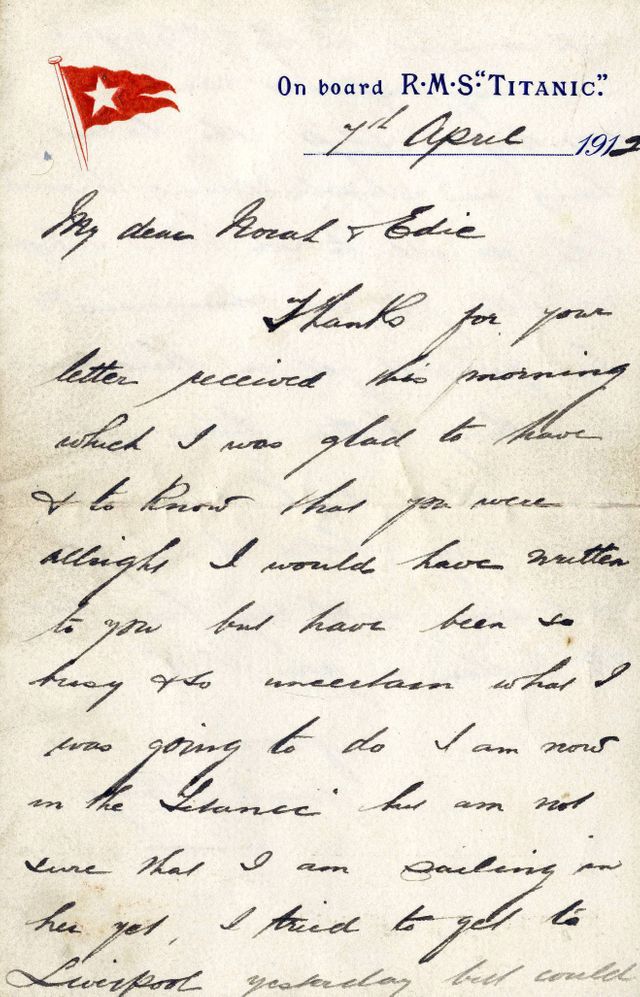 On board R·M·S. "TITANIC."
7th April 1912
My dear Norah & Edie
Thanks for your
letter received this morning
which I was glad to have
& to know that you were
allright I would have written
to you but have been so
busy & so uncertain what I
was going to do I am now
in the Titanic but am not
sure that I am sailing in
her yet, I tried to get to
Liverpool yesterday but could